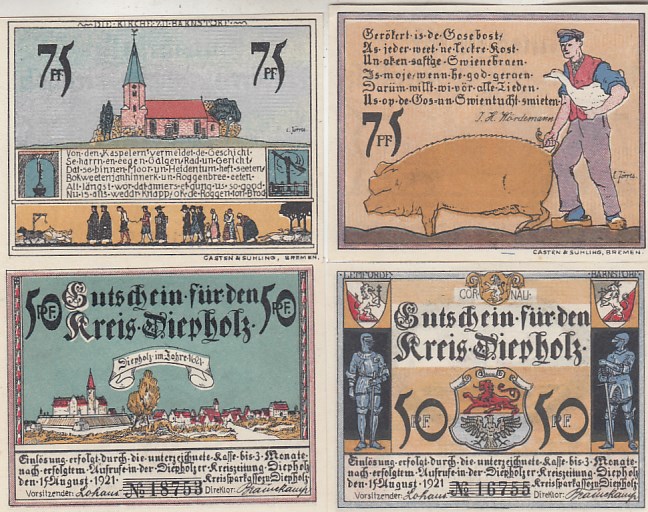 DIE·KIRCHE·ZU·BARNSTORF
75 PF
75 PF
Von·den·Kaspelern·vermeldet·de·Geschicht
Se·harrn·en·eegen·Galgen·Rad·un·Gericht
Dat·se·binnen·Moor·un·Heidentum·heft·seeten
Bokweetenjanhinnerk·un·Roggenbree·eeten
All·längst·wor·dat·anners·et·gung·us·so·good
Nu·is·alls·weddr·knapp·ok·de·Roggentorf·Brod
CASTEN & SUHLING, BREMEN.
Gerökert·is·de·Gosebost
As·jeder·weet·'ne·leckre·Kost
Un·oken·saftge·Swienebraen
Is·moje·wenn·he·god·geraen
Darüm·willt·wi·vör·alle·Tieden
Us·op·de·Gos·un·Swientucht·smieten
J. H. Wördemann
75 PF
CASTEN & SUHLING, BREMEN.
50 PF.
Gutschein·für·den
Kreis·Diepholz·
50 PF.
Diepholz·im·Jahre·1661
Einlösung·erfolgt·durch·die·unterzeichnete·Kasse·bis·3·Monate
nach·erfolgtem·Aufrufe·in·der·Diepholzer·Kreiszeitung·Diepholz
den·15·August·1921· Kreissparkasse·zu·Diepholz
Vorsitzender: Lohaus No 18753 Direktor:
LEMFÖRDE
COR NAU
BARNSTORF
Gutschein·für·den
Kreis·Diepholz·
50 PF.
50 PF.
Einlösung·erfolgt·durch·die·unterzeichnete·Kasse·bis·3·Monate
nach·erfolgtem·Aufrufe·in·der·Diepholzer·Kreiszeitung·Diepholz
den·15·August·1921 Kreissparkasse·zu·Diepholz
Vorsitzender: Lohaus No 16755 Direktor: